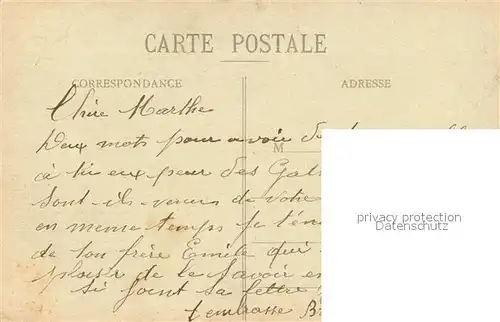 CARTE POSTALE
CORRESPONDANCE
ADRESSE
Chère Marthe
Deux mots pour avoir de
M
à tu eux peur des
sont-ils venus de votre
en meme temps je t'en
de ton frère Emile qui
plaisir de le savoir en
si joint sa lettre
t'embrasse
privacy protection
Datenschutz